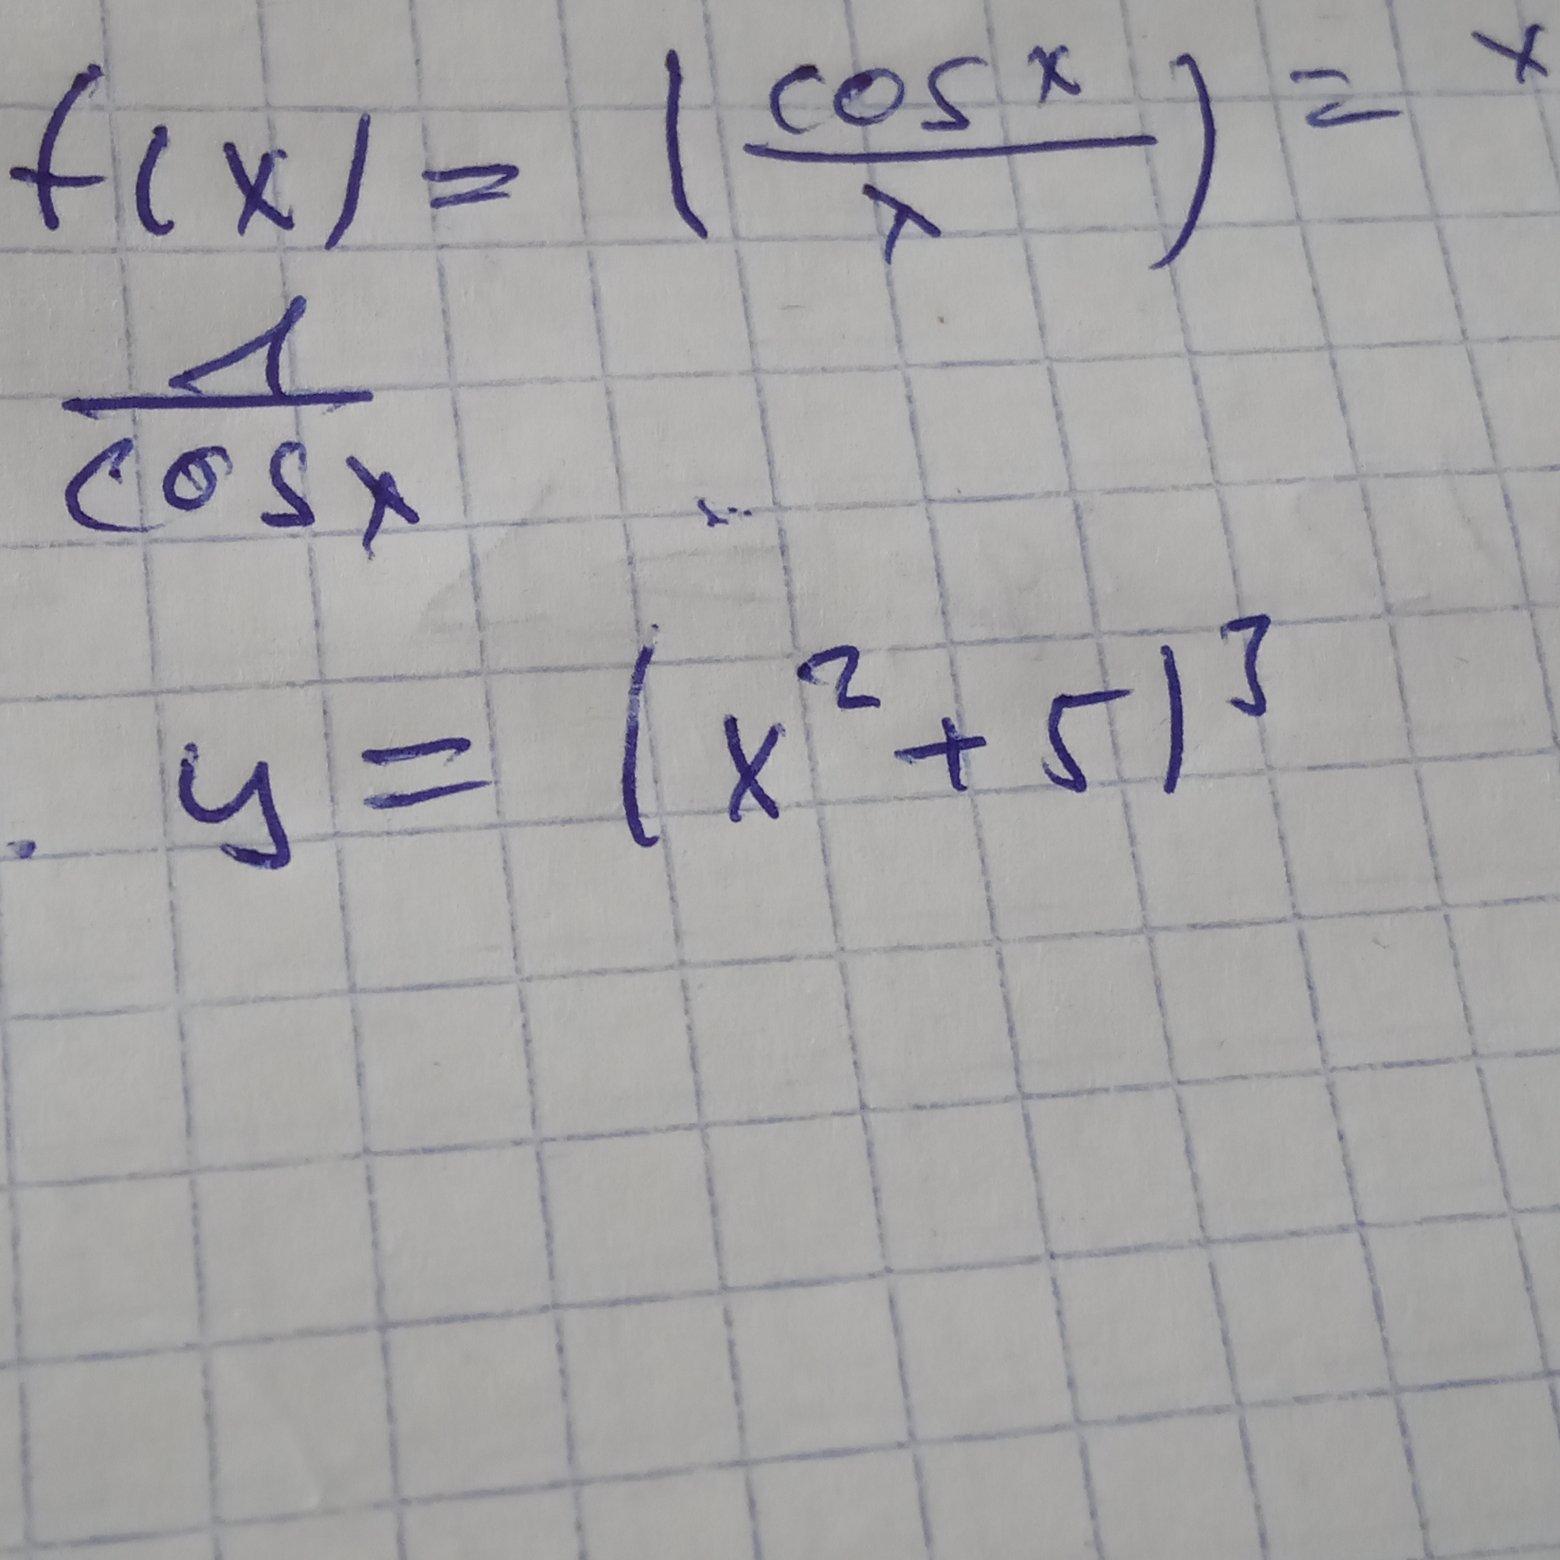 f(x) = (cos x / x) = x
1 / cos x
. y = (x² + 5)³